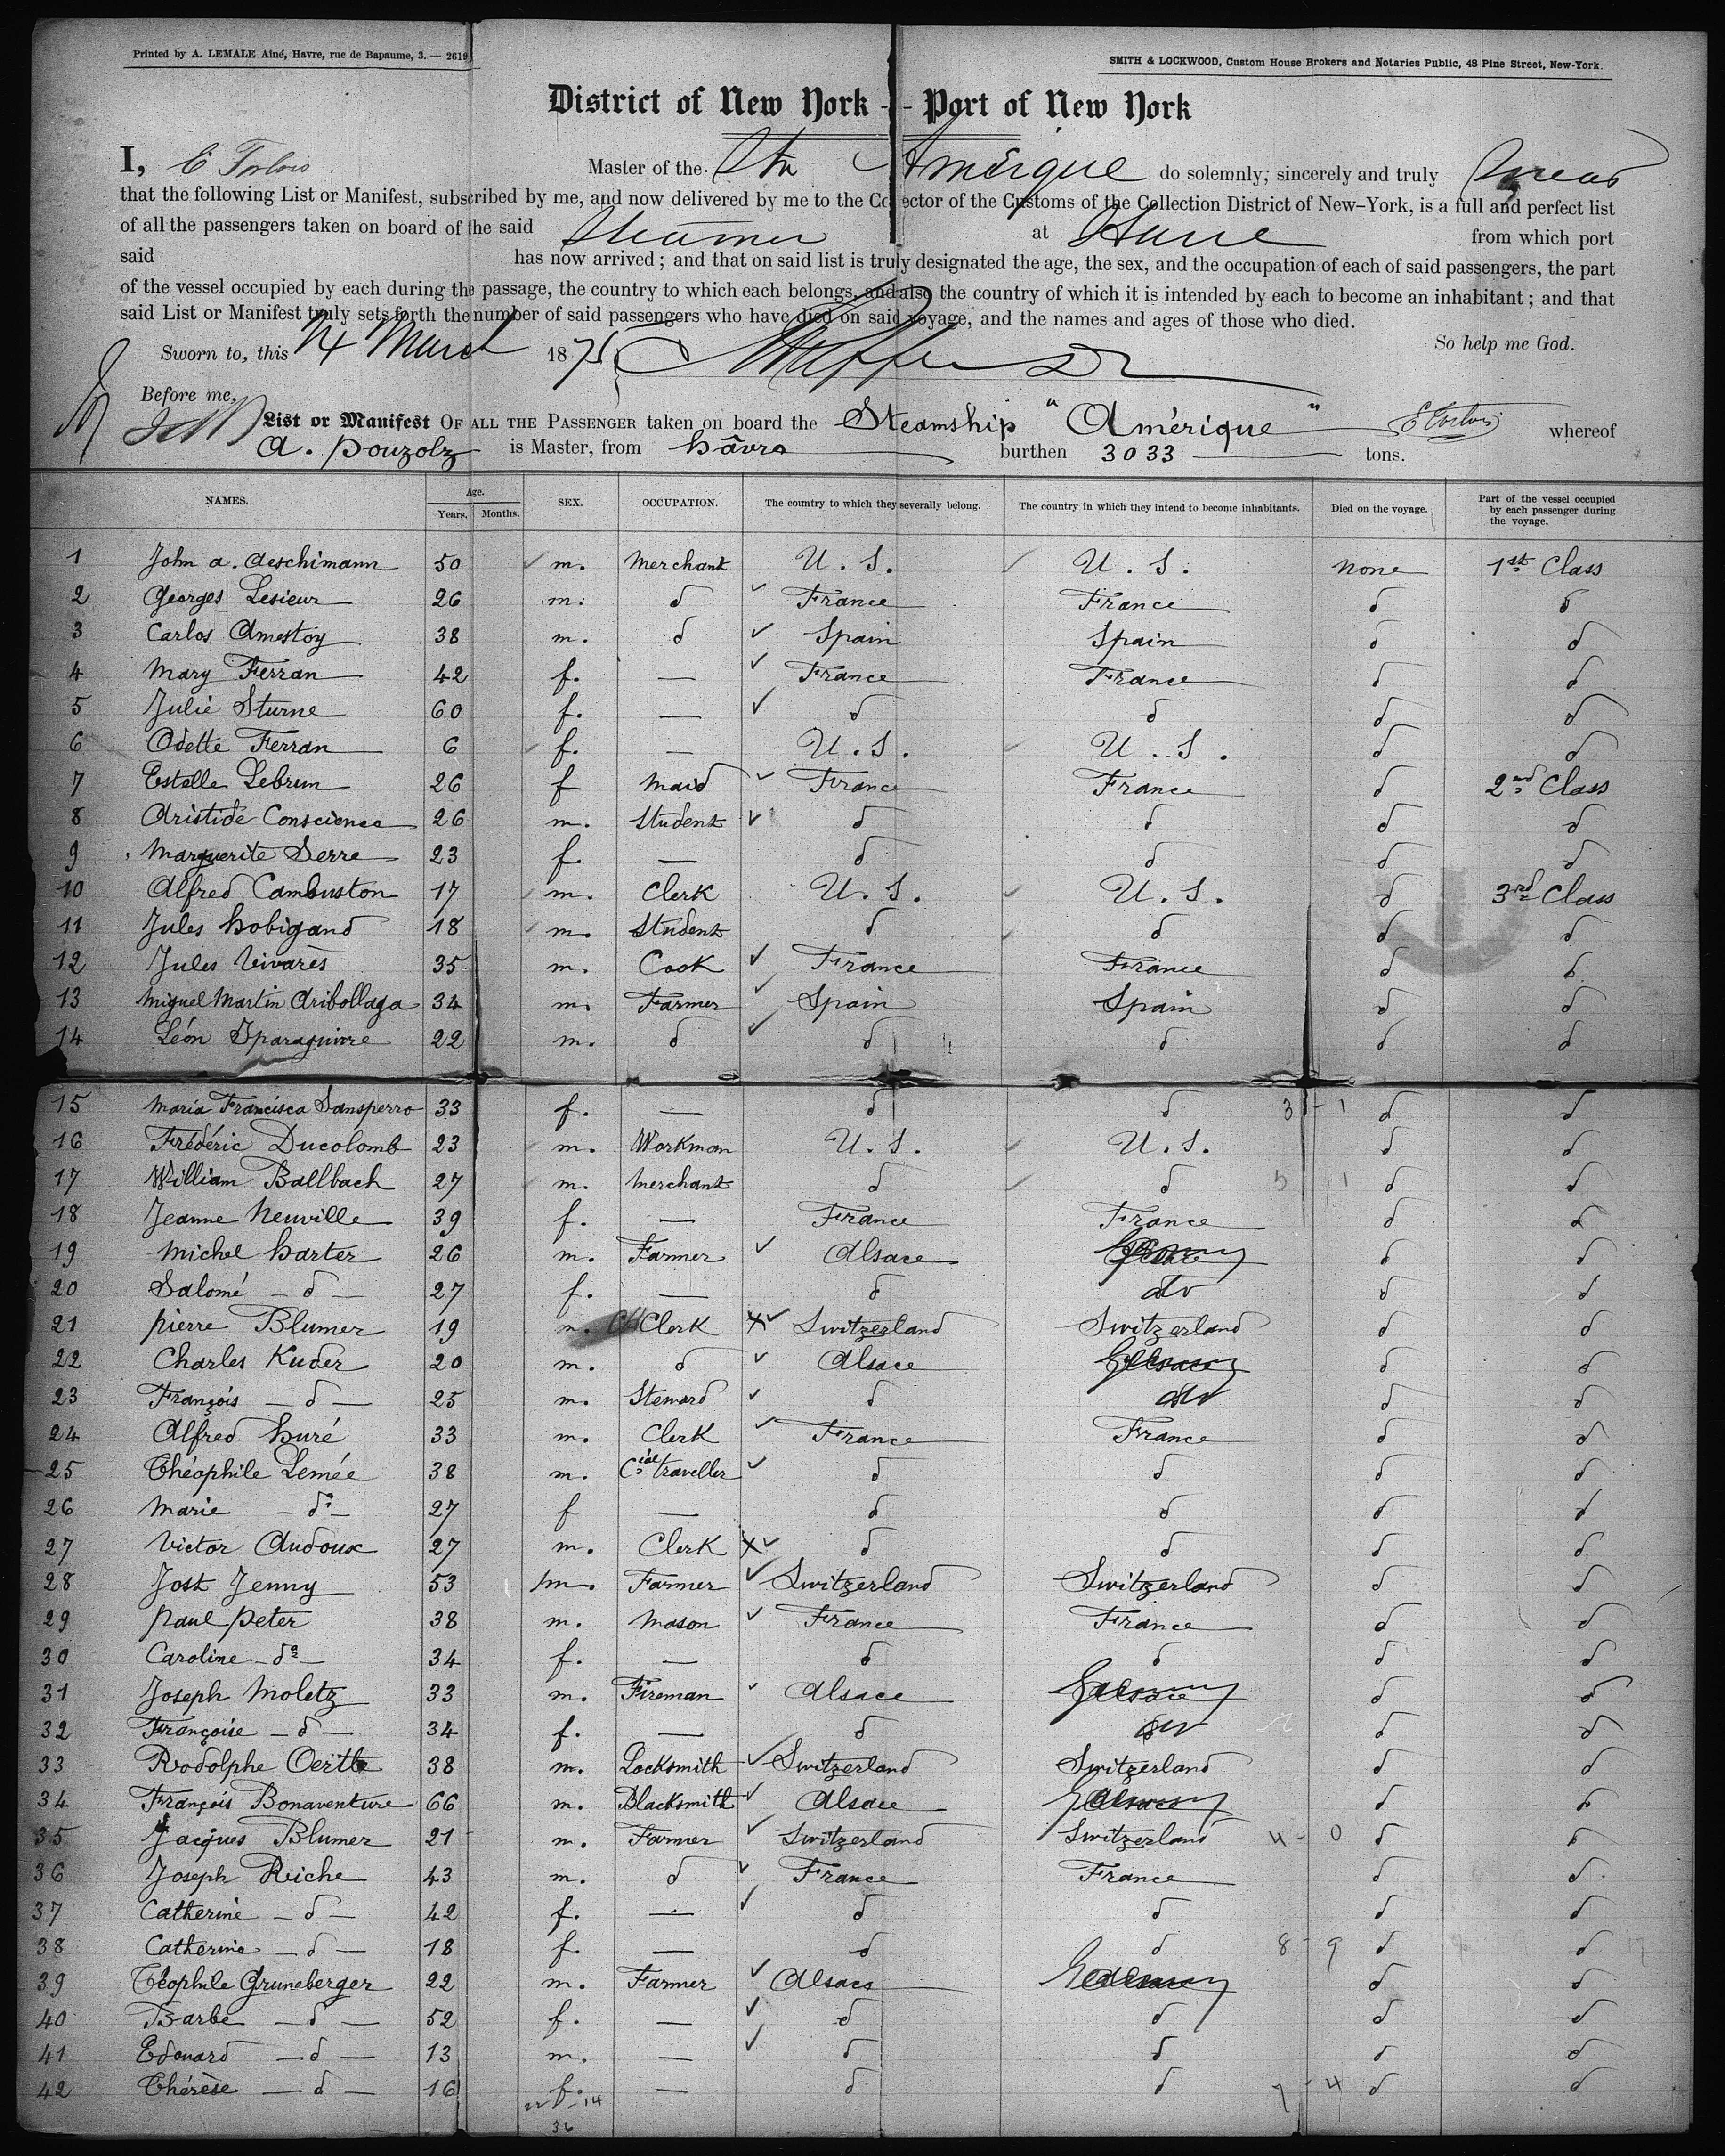 Printed by A. LEMALE Aîné, Havre, rue de Bapaume, 3. — 2619
SMITH & LOCKWOOD, Custom House Brokers and Notaries Public, 48 Pine Street, New-York.
District of New York - Port of New York
I, Master of the Str Amérique do solemnly, sincerely and truly Swear
that the following List or Manifest, subscribed by me, and now delivered by me to the Collector of the Customs of the Collection District of New-York, is a full and perfect list
of all the passengers taken on board of the said Steamer at Havre from which port
said has now arrived; and that on said list is truly designated the age, the sex, and the occupation of each of said passengers, the part
of the vessel occupied by each during the passage, the country to which each belongs, and also the country of which it is intended by each to become an inhabitant; and that
said List or Manifest truly sets forth the number of said passengers who have died on said voyage, and the names and ages of those who died.
So help me God.
Sworn to, this 24 March 1875
Before me,
List or Manifest OF ALL THE PASSENGER taken on board the Steamship "Amérique" whereof
A. Pouzolz is Master, from hâvre burthen 3033 tons.
NAMES. Age. Years. Months. SEX. OCCUPATION. The country to which they severally belong. The country in which they intend to become inhabitants. Died on the voyage. Part of the vessel occupied by each passenger during the voyage.
1 John A. Aeschimann 50 m. Merchant U. S. U. S. None 1st Class
2 Georges Lesieur 26 m. d France France d d
3 Carlos Amestoy 38 m. d Spain Spain d d
4 Mary Ferran 42 f. — France France d d
5 Julie Sturne 60 f. — d d d d
6 Odette Ferran 6 f. — U. S. U. S. d d
7 Estelle Lebrun 26 f Maid France France d 2nd Class
8 Aristide Conscience 26 m. Student d d d d
9 Marguerite Serre 23 f. — d d d d
10 Alfred Cambuston 17 m. Clerk U. S. U. S. d 3rd Class
11 Jules hobigand 18 m. Student d d d d
12 Jules Vivarès 35 m. Cook France France d d
13 Miguel Martin Aribollaga 34 m. Farmer Spain Spain d d
14 Léon Yparaguirre 22 m. d d d d d
15 Maria Francisca Sansperro 33 f. — d d 3 - 1 d d
16 Frédéric Ducolomb 23 m. Workman U. S. U. S. d d
17 William Ballbach 27 m. Merchant d d 5 1 d d
18 Jeanne Neuville 39 f. — France France d d
19 Michel harter 26 m. Farmer Alsace Germany d d
20 Salomé — d — 27 f. — d do d d
21 Pierre Blumer 19 m. Clerk Switzerland Switzerland d d
22 Charles Kuder 20 m. d Alsace Germany d d
23 François — d — 25 m. Steward d do d d
24 Alfred huré 33 m. Clerk France France d d
25 Théophile Lemée 38 m. Cial traveller d d d d
26 Marie — d° — 27 f — d d d d
27 Victor Audoux 27 m. Clerk d d d d
28 Jost Jenny 53 m. Farmer Switzerland Switzerland d d
29 Paul Peter 38 m. Mason France France d d
30 Caroline — d° — 34 f. — d d d d
31 Joseph Moletz 33 m. Fireman Alsace Germany d d
32 Françoise — d — 34 f. — d do d d
33 Rodolphe Oertle 38 m. Locksmith Switzerland Switzerland d d
34 François Bonaventure 66 m. Blacksmith Alsace Germany d d
35 Jacques Blumer 21 m. Farmer Switzerland Switzerland 4 - 0 d d
36 Joseph Reiche 43 m. d France France d d
37 Catherine — d — 42 f. — d d d d
38 Catherine — d — 18 f. — d d 8 - 9 d d
39 Téophile Gruneberger 22 m. Farmer Alsace Germany d d
40 Barbe — d — 52 f. — d d d d
41 Edouard — d — 13 m. — d d d d
42 Thérèse — d — 16 f. — d d 7 - 4 d d
22 14
36